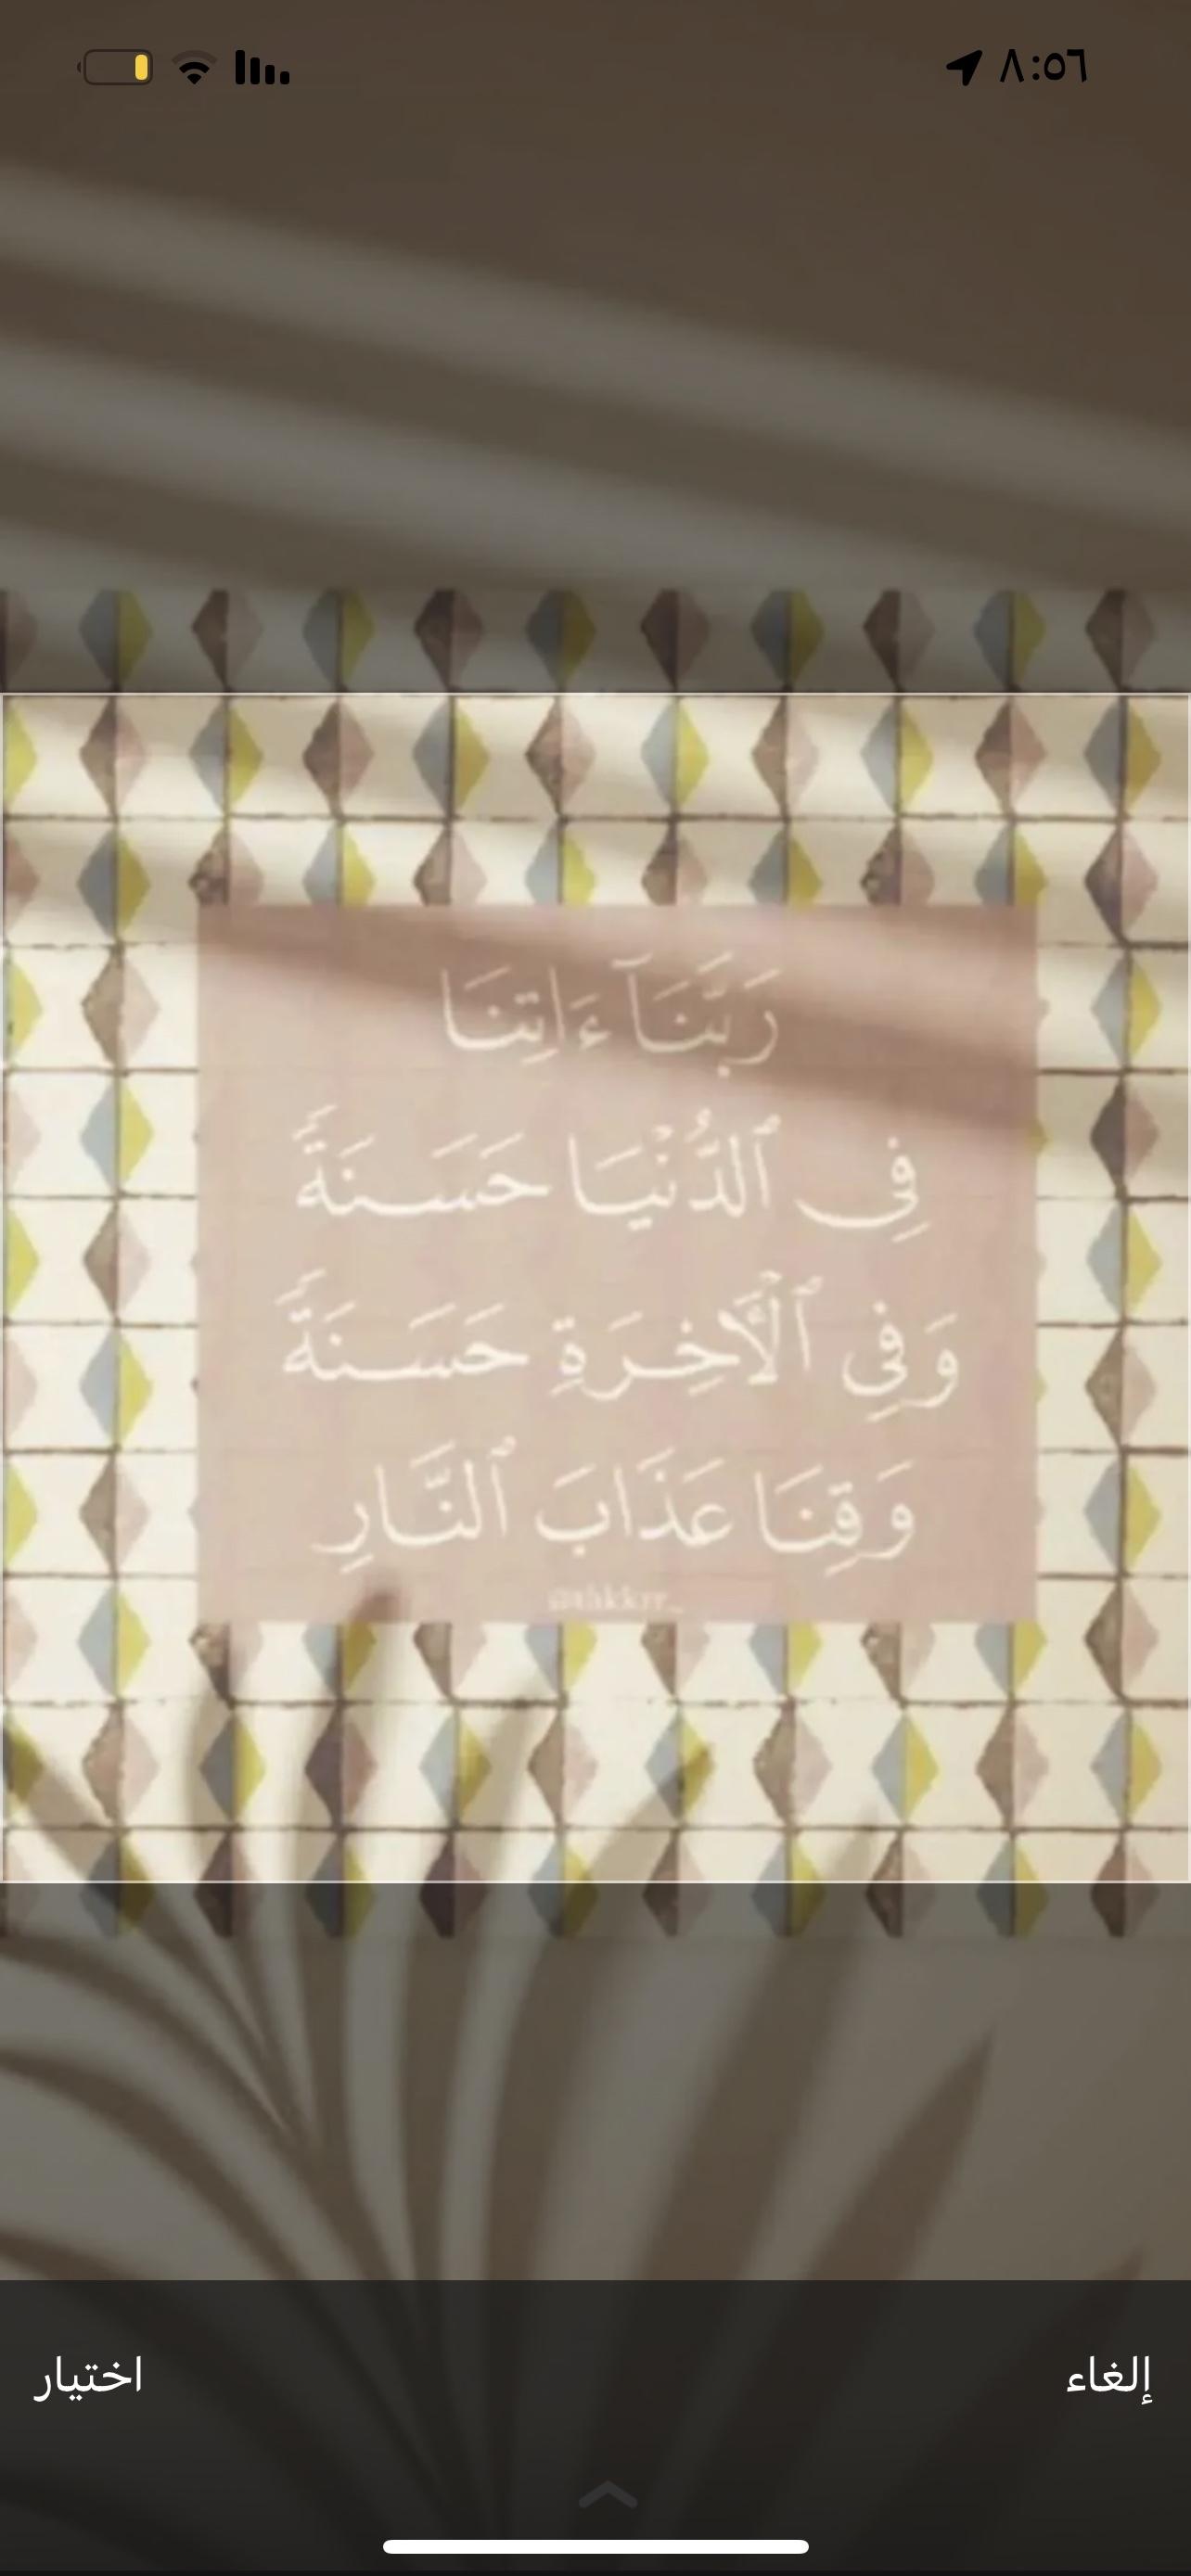 ٨:٥٦
رَبَّنَآ ءَاتِنَا
فِى ٱلدُّنْيَا حَسَنَةً
وَفِى ٱلْأَخِرَةِ حَسَنَةً
وَقِنَا عَذَابَ ٱلنَّارِ
إلغاء
اختيار